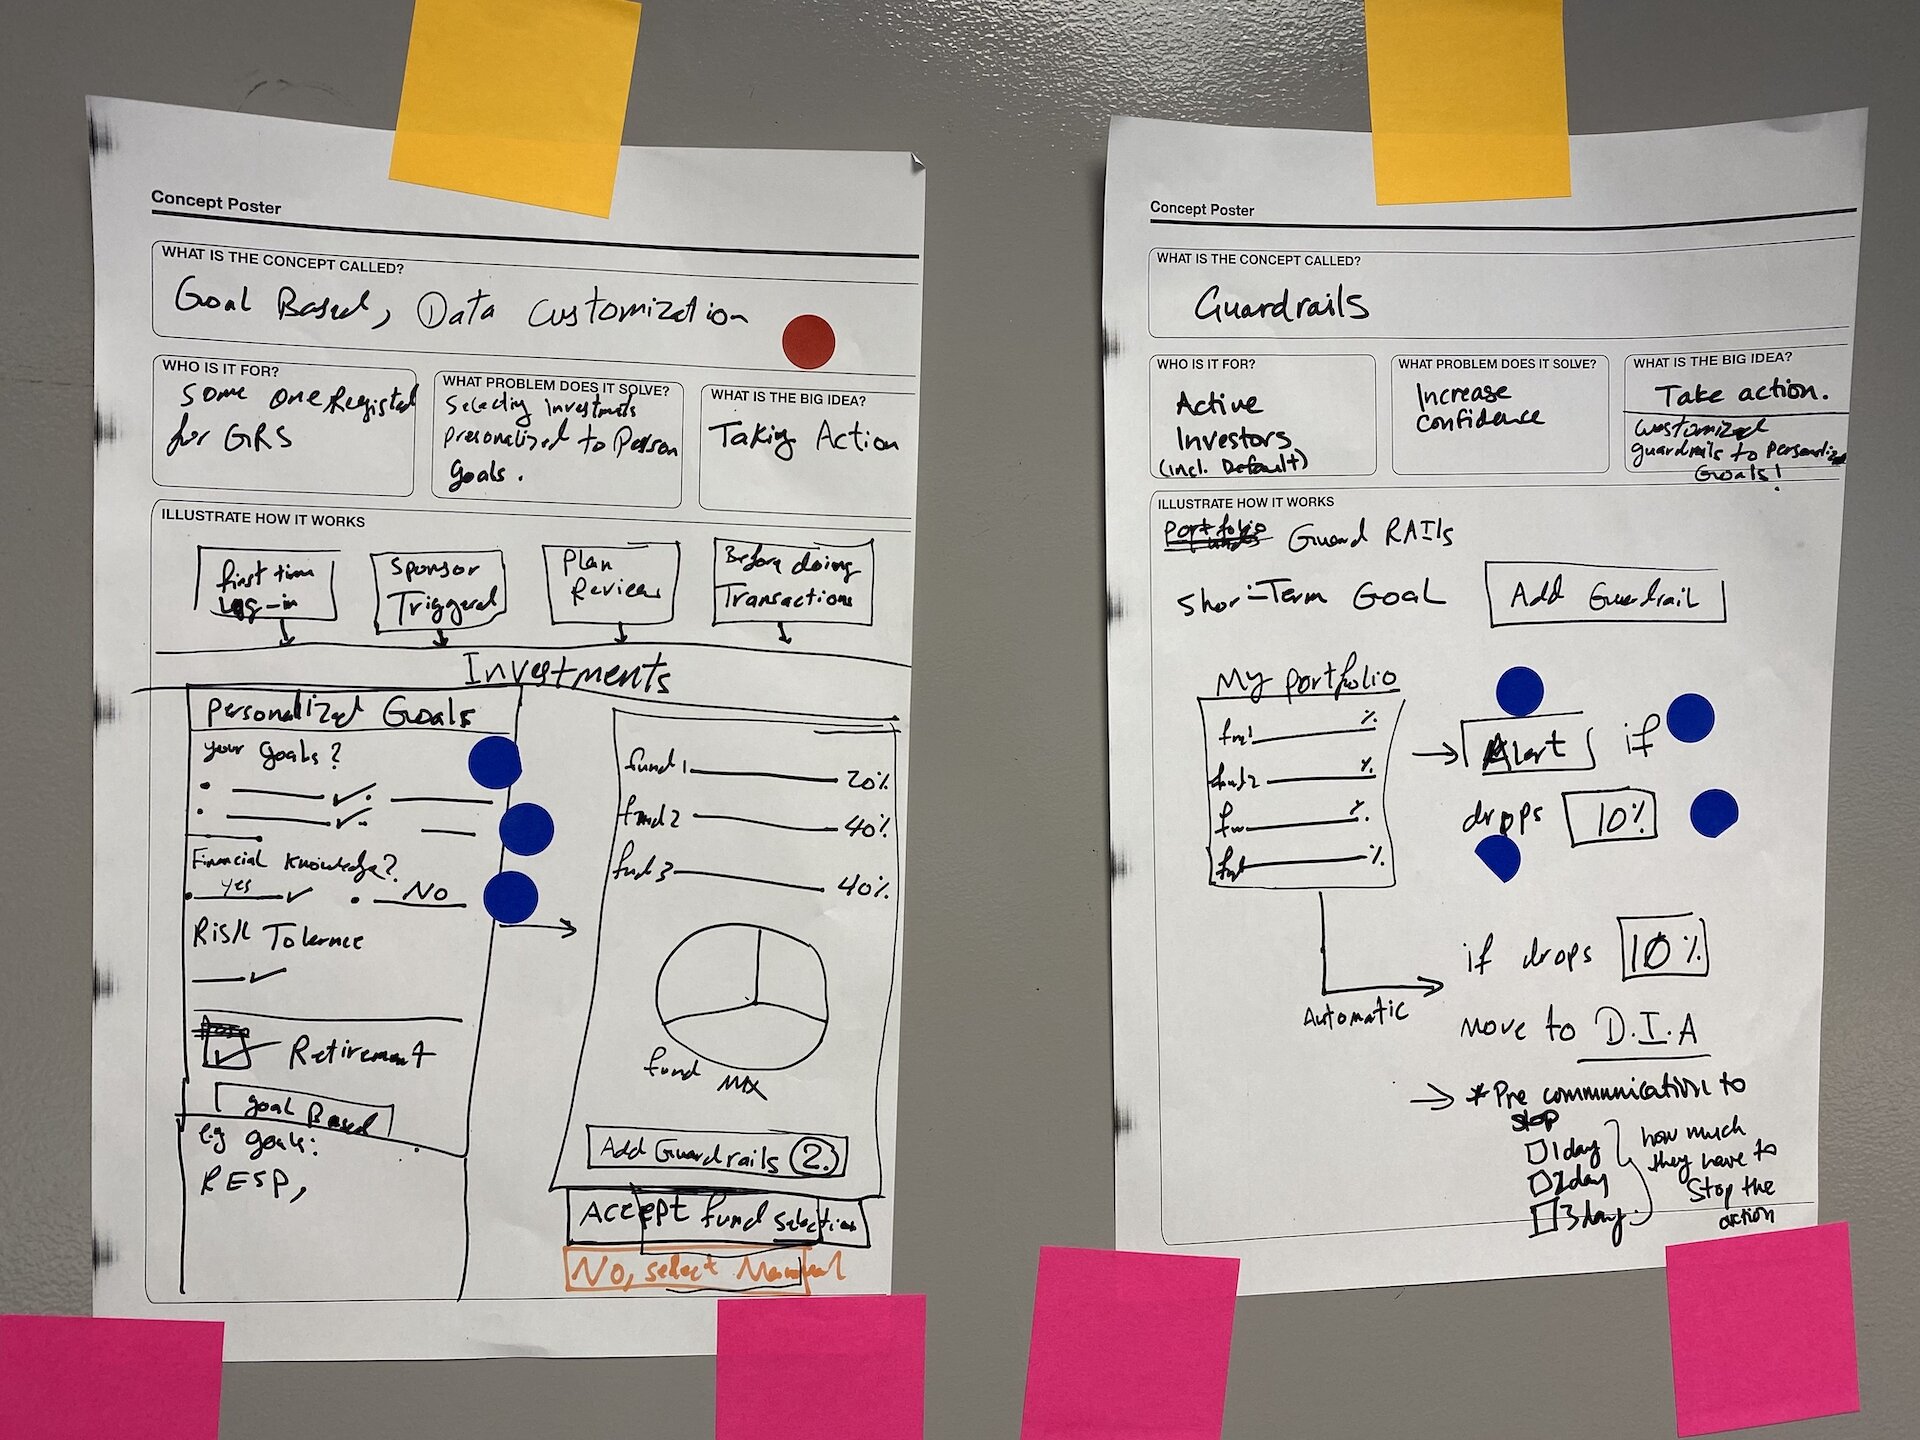 Concept Poster
WHAT IS THE CONCEPT CALLED?
Goal Based, Data Customization
WHO IS IT FOR?
Some one Registed
for GRS
WHAT PROBLEM DOES IT SOLVE?
Selecting investments
presonalized to Person
goals.
WHAT IS THE BIG IDEA?
Taking Action
ILLUSTRATE HOW IT WORKS
first time
Log-in
Sponsor
Triggered
Plan
Review
Before doing
Transactions
Investments
Personalized Goals
your goals?
Financial Knowledge?
yes
NO
Risk Tolernce
Retirement
goal Based
e.g goals:
RESP,
fund 1 20%
fund 2 40%
fund 3 40%
fund MIX
Add Guardrails 2.
Accept fund selection
No, select Manual
Concept Poster
WHAT IS THE CONCEPT CALLED?
Guardrails
WHO IS IT FOR?
Active
Investors
(incl. Default)
WHAT PROBLEM DOES IT SOLVE?
Increase
confidence
WHAT IS THE BIG IDEA?
Take action.
Customized
guardrails to personalized
Goals!
ILLUSTRATE HOW IT WORKS
Portfolio
Guard RAILs
Short-Term Goal
Add Guardrail
My portfolio
%
fund 2 %
%
%
Alert if
drops 10%
Automatic
if drops 10%
Move to D.I.A
*Pre communication to
stop
1 day
2 day
3 day
how much
they have to
Stop the
action